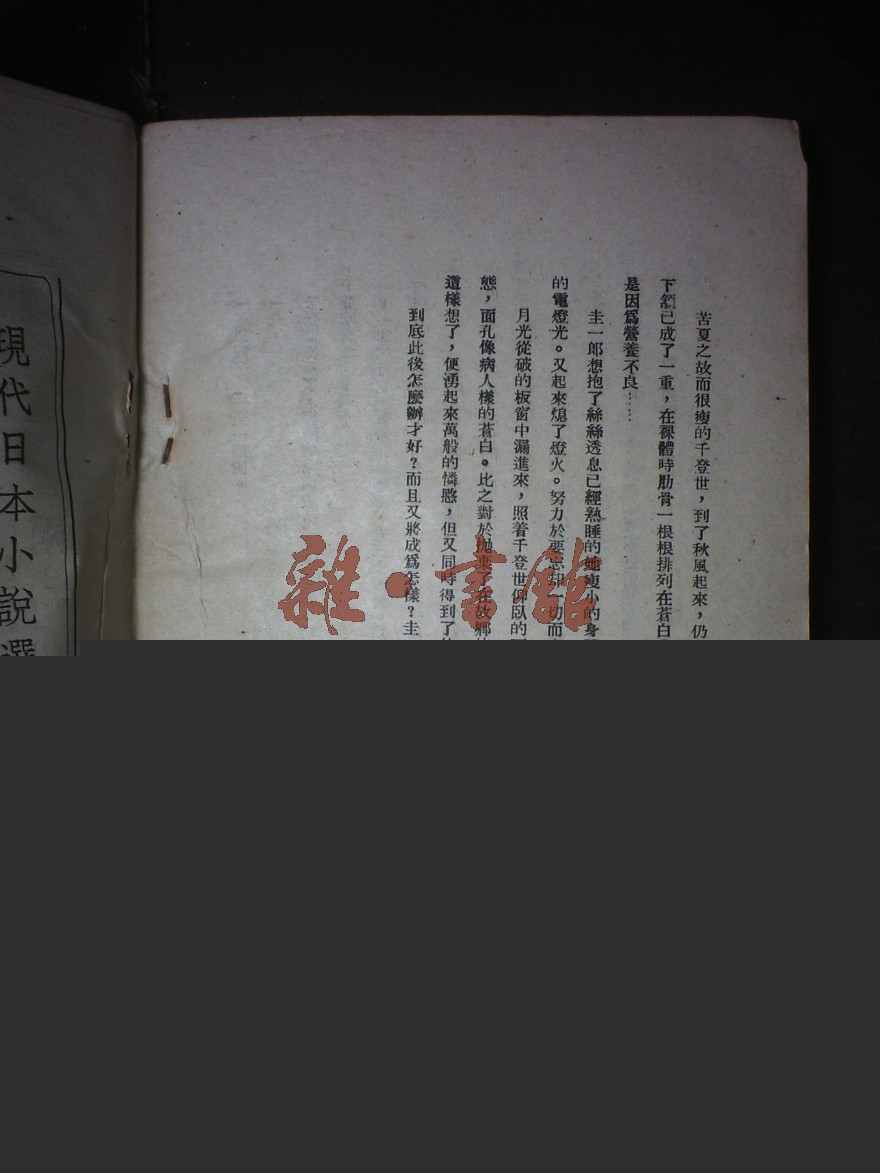 苦夏之故而很瘦的千登世，到了秋風起來，仍
下頷已成了一重，在裸體時肋骨一根根排列在蒼白
是因爲營養不良……
圭一郎想抱了絲絲透息已經熟睡的她瘦小的身
的電燈光。又起來熄了燈火。努力於要忘却一切而
月光從破的板窗中漏進來，照着千登世仰臥的
態，面孔像病人樣的蒼白。比之對於拋棄了在故鄉
這樣想了，便湧起來萬般的憐愍，但又同時得到了
到底此後怎麼辦才好？而且又將成爲怎樣？圭
現代日本小說選
雜·書館